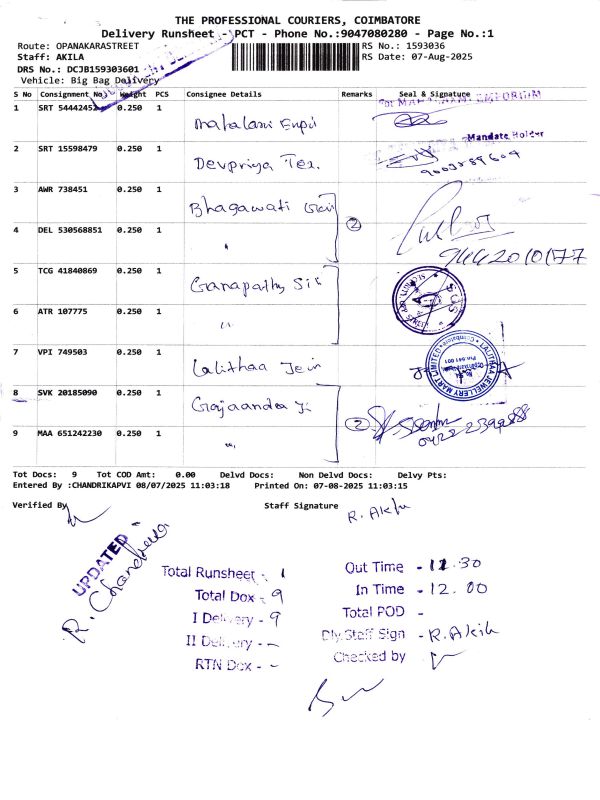 THE PROFESSIONAL COURIERS, COIMBATORE
Delivery Runsheet - PCT - Phone No.:9047080280 - Page No.:1
Route: OPANAKARASTREET
RS No.: 1593036
Staff: AKILA
RS Date: 07-Aug-2025
DRS No.: DCJB159303601
Vehicle: Big Bag Delivery
S No Consignment No. Weight PCS Consignee Details Remarks Seal & Signature
For MAHALAXMI EMPORIUM
1 SRT 54442452 0.250 1
Mandate Holder
2 SRT 15598479 0.250 1 Devpriya Tex.
3 AWR 738451 0.250 1 Bhagawati
2
4 DEL 530568851 0.250 1 "
5 TCG 41840869 0.250 1 Ganapathy Silk
6 ATR 107775 0.250 1 "
7 VPI 749503 0.250 1 Lalithaa Jein
LALITHAA JEWELLERY MART LIMITED
8 SVK 20185090 0.250 1
2
9 MAA 651242230 0.250 1 "
Tot Docs: 9 Tot COD Amt: 0.00 Delvd Docs: Non Delvd Docs: Delvy Pts:
Entered By :CHANDRIKAPVI 08/07/2025 11:03:18 Printed On: 07-08-2025 11:03:15
Verified By
Staff Signature
UPDATED
Total Runsheet - 1
Total Dox - 9
I Delivery - 9
II Delivery - -
RTN Dox - -
Out Time - 11.30
In Time - 12.00
Total POD -
Dly.Staff Sign - R.Akila
Checked by